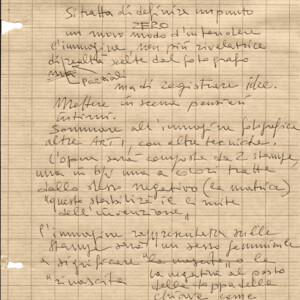 Si tratta di definire un punto
ZERO
un nuovo modo d'intendere
l'immagine, non più rivelatrice
di realtà scelte dal fotografo
ma di registrare idee.
Mettere in scena pensieri
intimi.
Sommare all'immagine fotografica
altre Arti, con altre tecniche.
L'opera sarà composta da 2 stampe,
una in b/n una a colori tratta
dallo stesso negativo (la matrice)
questo stabilizza il limite
dell'invenzione"
l'immagine rappresenterà sulle
stampe sarà un sesso femminile
a significare "la nascita" o la
"rinascita
la negativa al posto
della toppa della
chiave come